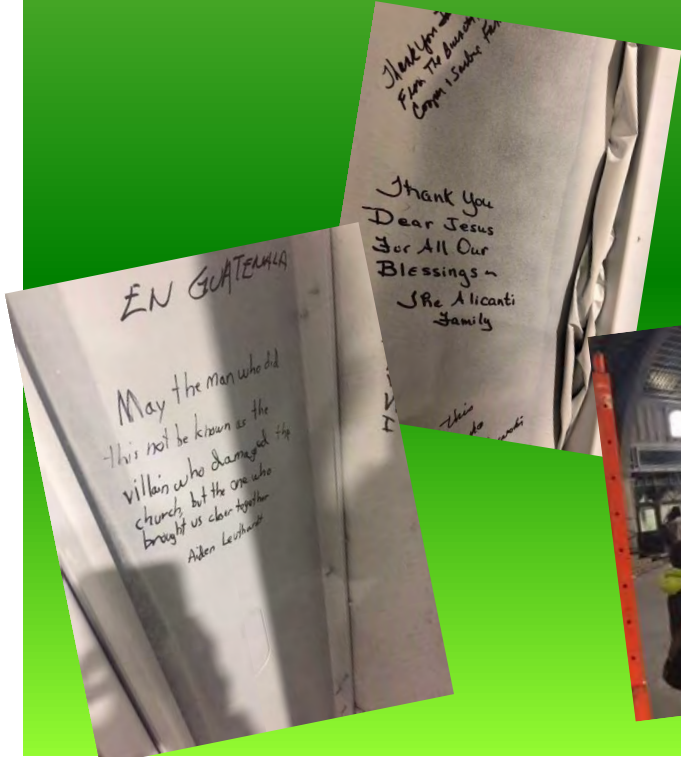 Thank You
From The
Thank You
Dear Jesus
For All Our
Blessings ~
The Alicanti
Family
This
EN GUATEMALA
May the man who did
this not be known as the
villain who damaged the
church, but the one who
brought us closer together
Aiden
V
I